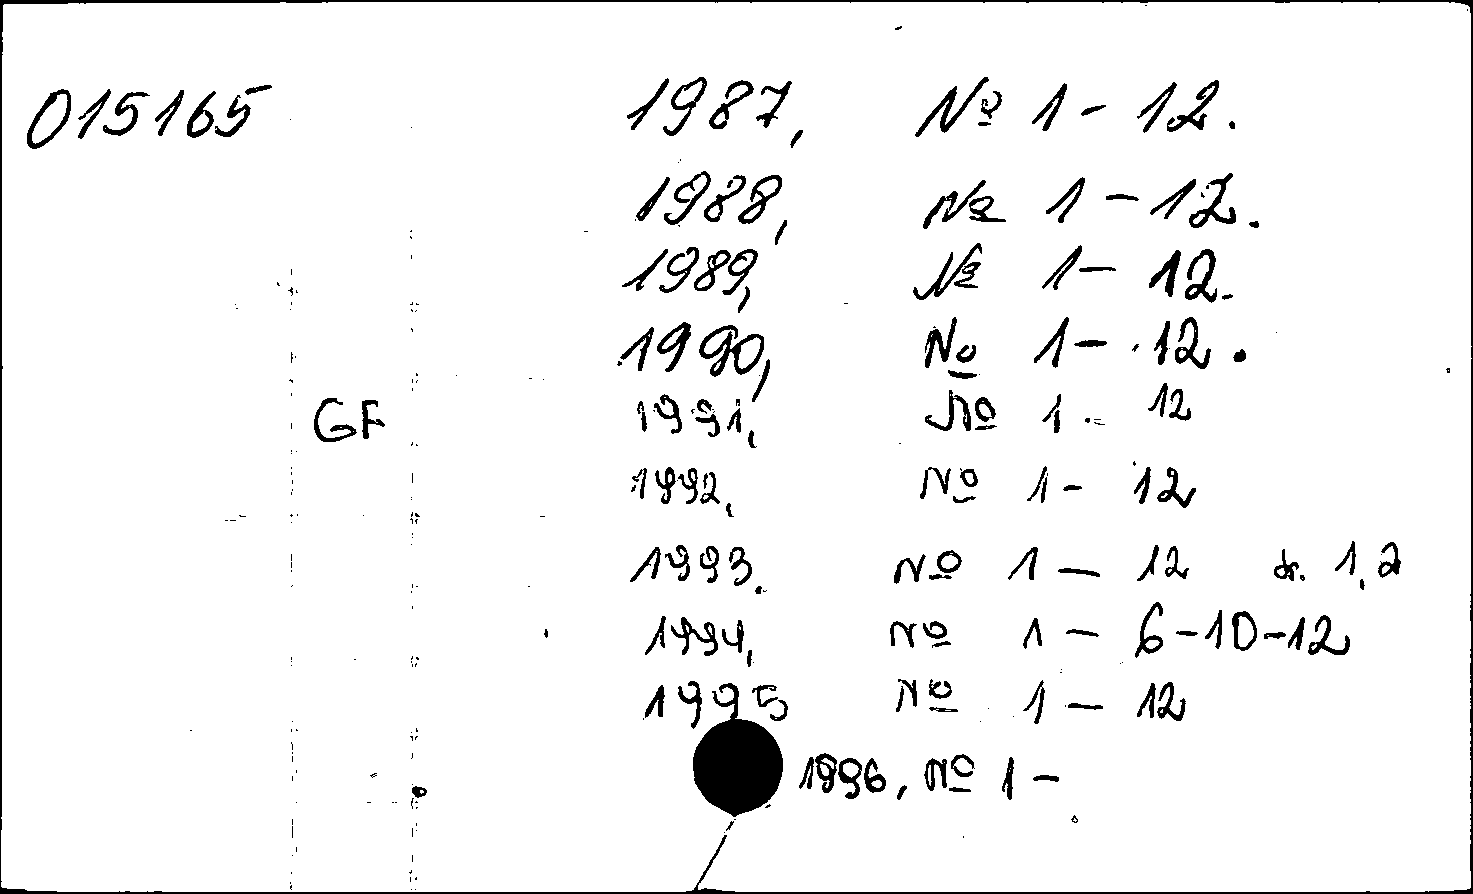 015165 1987, № 1-12.
1988, № 1-12.
1989, № 1-12.
1990, № 1-12.
GF 1991, № 1- 12
1992, № 1- 12
1993. № 1-12 dr. 1,2
1994, № 1-6-10-12
1995 № 1-12
1996, № 1-